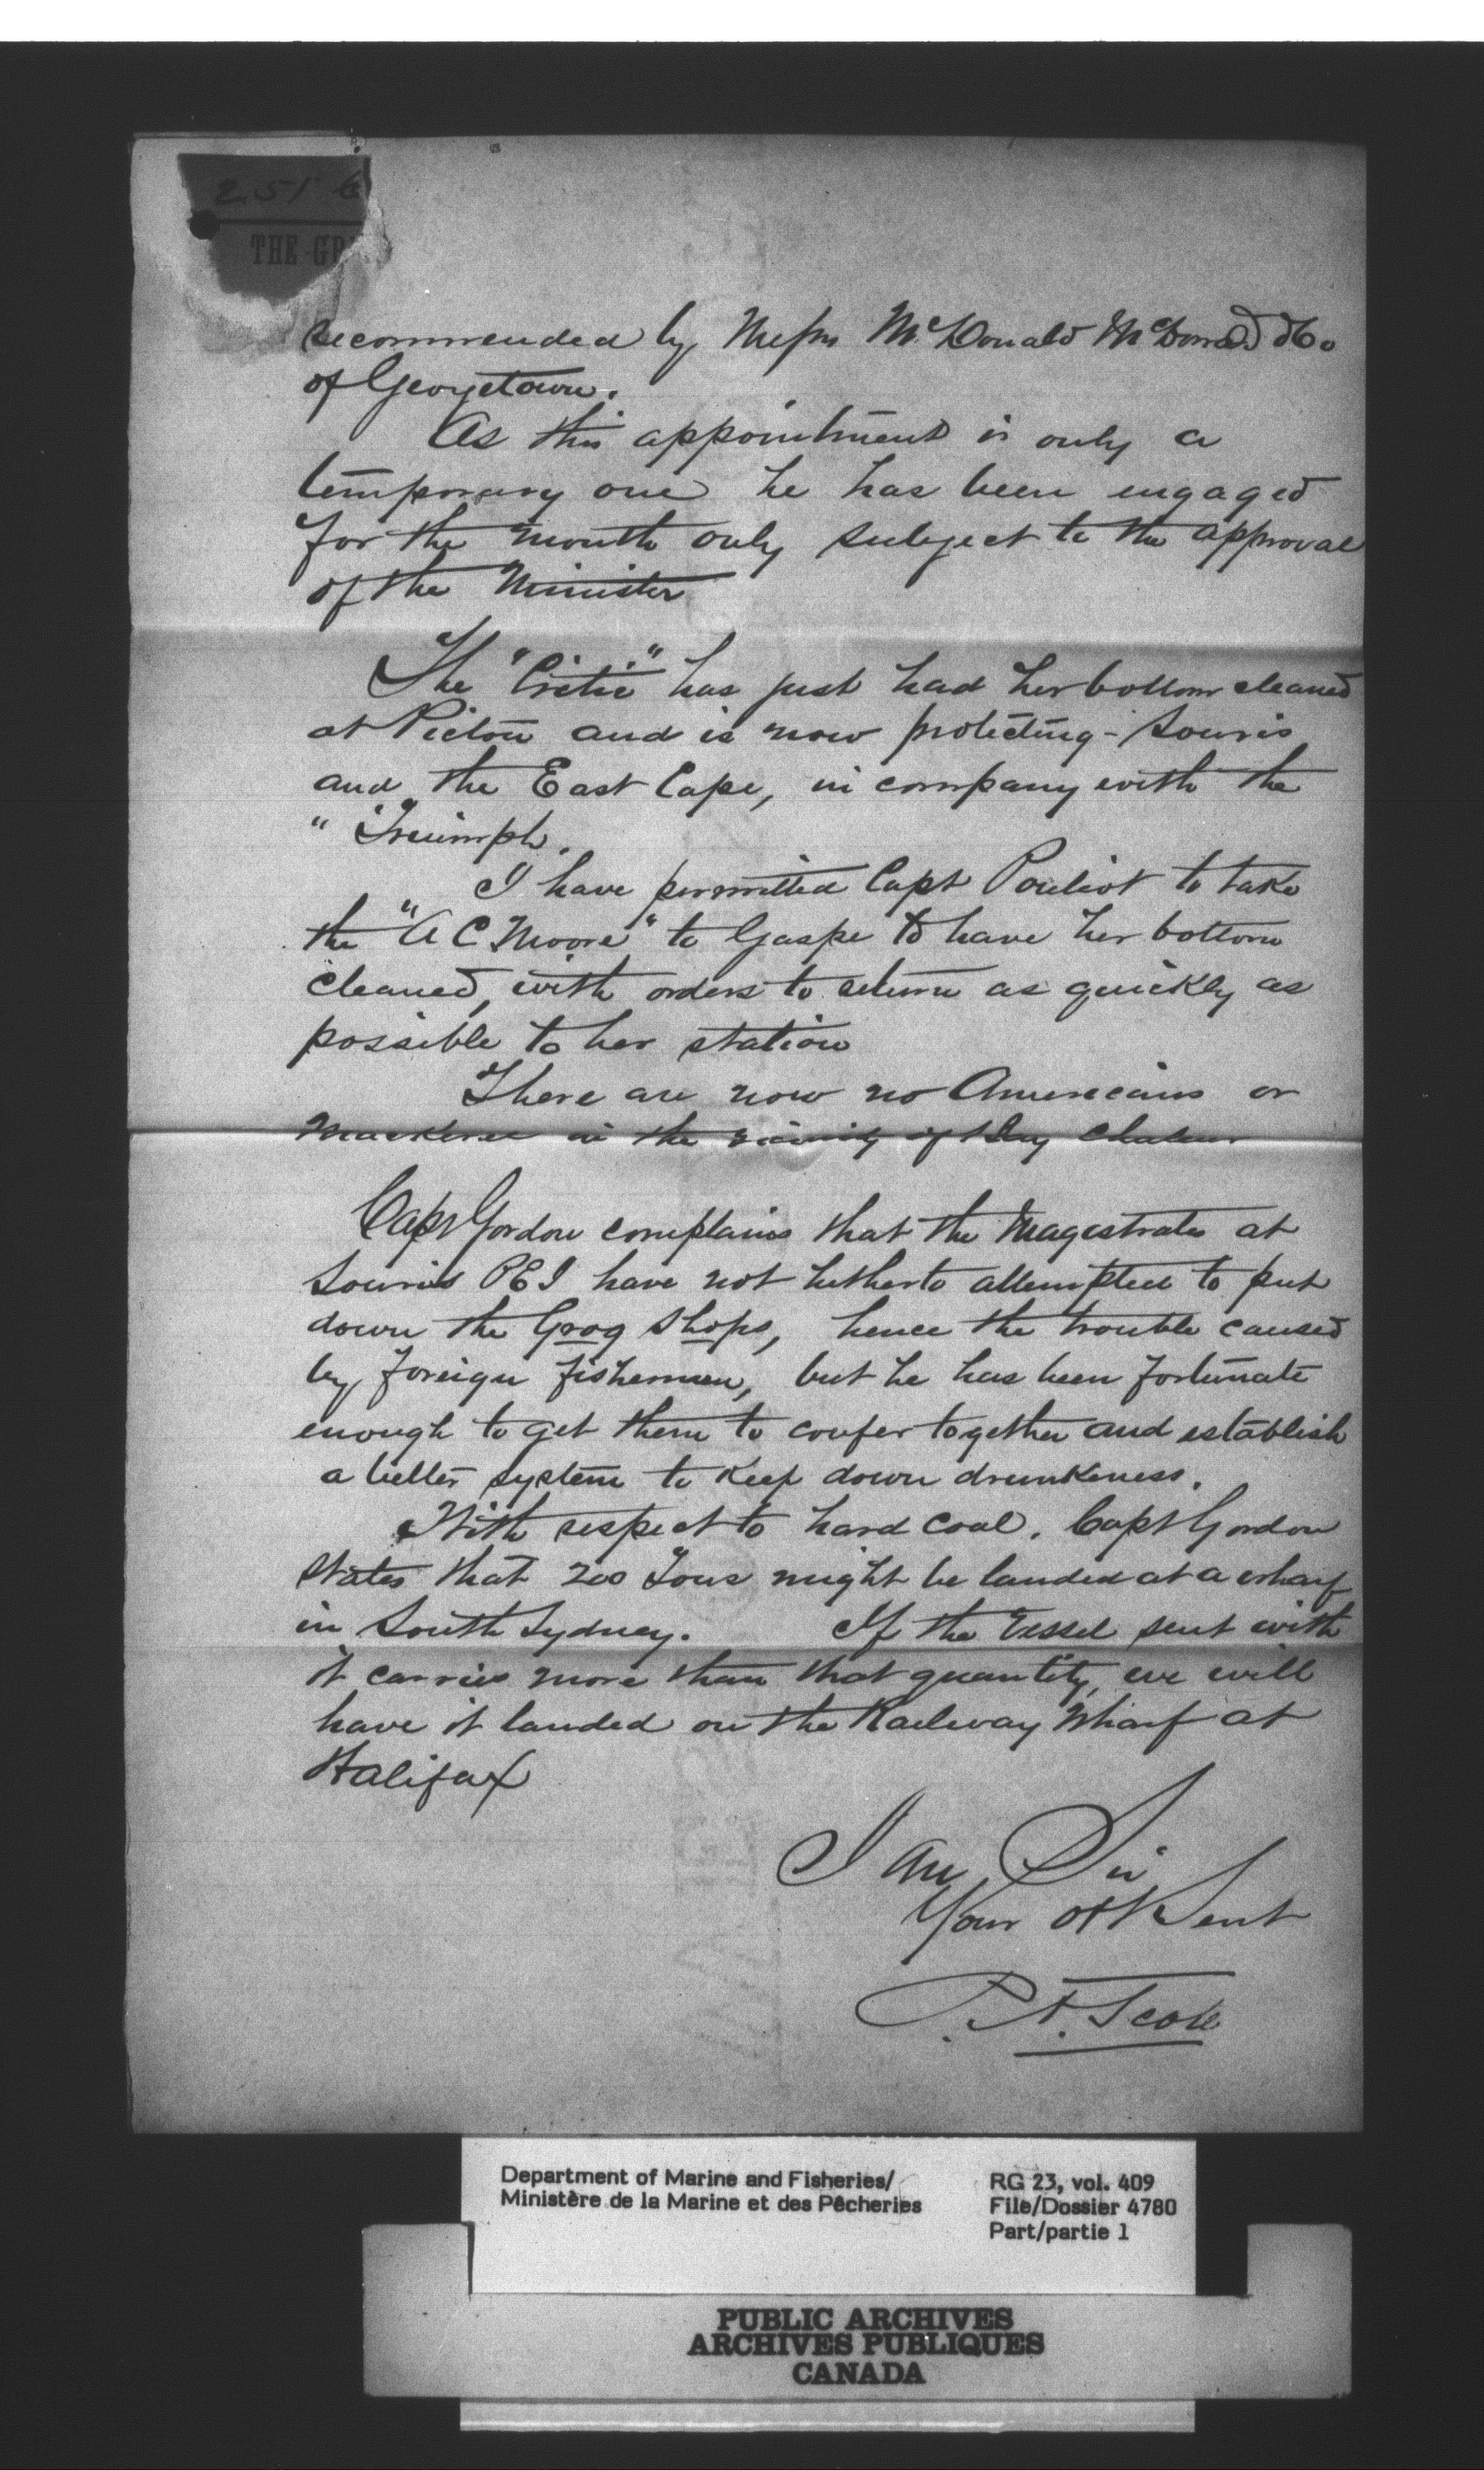 251
THE GR
recommended by Messrs McDonald McDonald & Co
of Georgetown.
As this appointment is only a
temporary one he has been engaged
for the month only subject to the approval
of the Minister
The "Critic" has just had her bottom cleaned
at Pictou and is now protecting - Souris
and the East Cape, in company with the
" Triumph.
I have permitted Capt Pouliot to take
the "A C Moore" to Gaspe to have her bottom
cleaned, with orders to return as quickly as
possible to her station
There are now no Americans or
Mackerel in the vicinity of Bay Chaleur
Capt Gordon complains that the Magistrates at
Souris PEI have not hitherto attempted to put
down the Grog Shops, hence the trouble caused
by foreign fishermen, but he has been fortunate
enough to get them to confer together and establish
a better system to keep down drunkeness.
With respect to hard coal. Capt Gordon
states that 200 Tons might be landed at a wharf
in South Sydney. If the Vessel sent with
it carries more than that quantity, we will
have it landed on the Railway Wharf at
Halifax
I am Sir
Your Obt Servt
P. A. Scott
Department of Marine and Fisheries/
Ministère de la Marine et des Pêcheries
RG 23, vol. 409
File/Dossier 4780
Part/partie 1
PUBLIC ARCHIVES
ARCHIVES PUBLIQUES
CANADA